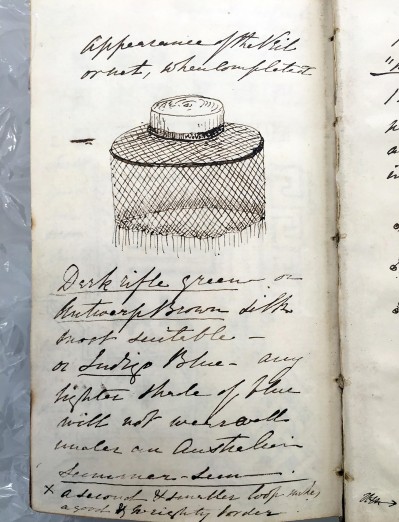 Appearance of the Veil
or net, when completed
Dark rifle green or
Antwerp Brown silk
most suitable –
or Indigo Blue – any
lighter shade of blue
will not wear well
under an Australian
summer-sun.
x a second & smaller loop makes
a good & weighty border